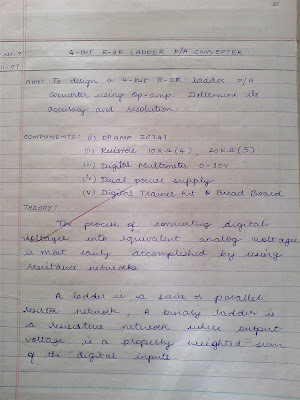 O.NO. 7
4-BIT R-2R LADDER D/A CONVERTER
AIM: To design a 4-bit R-2R Ladder D/A
Converter using Op-amp. Determine its
accuracy and resolution.
COMPONENTS: (i) OP AMP IC741
(ii) Resistors 10KΩ(4), 20KΩ(5)
(iii) Digital Multimeter 0-10V
(iv) Dual power supply
(v) Digital Trainer Kit & Bread Board
THEORY:
The process of converting digital
voltages into equivalent analog voltages
is most easily accomplished by using
resistance networks.
A ladder is a series or parallel
network. A binary ladder is
a resistive network where output
voltage is a properly weighted sum
of the digital inputs.